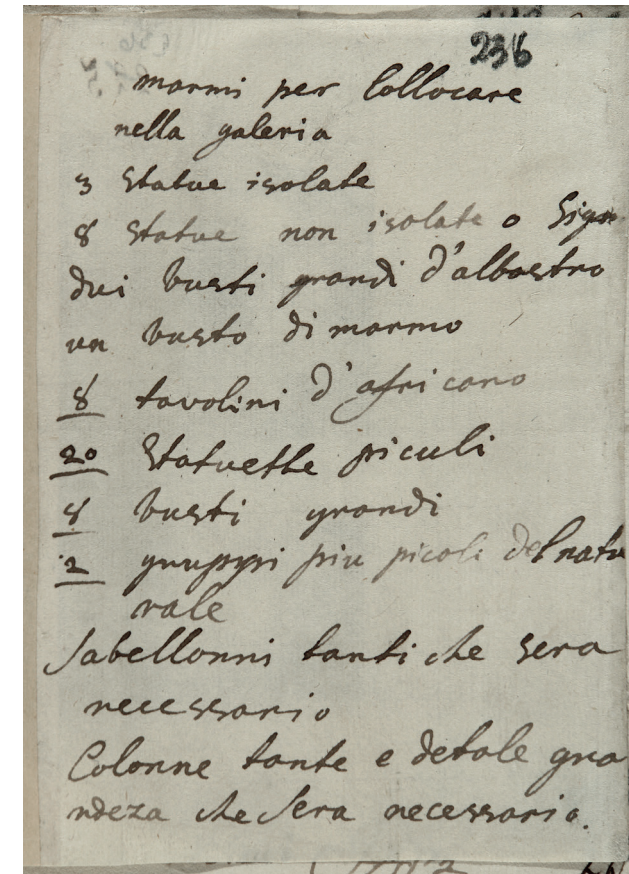 236
marmi per Collocare
nella galeria
3 Statue isolate
8 Statue non isolate o Sign
dui busti grandi d'albastro
un busto di marmo
8 tavolini d'africano
20 Statuette piculi
8 busti grandi
2 gruppi piu picoli del natu
rale
Sabellonni tanti che sera
necessario
Colonne tante e de tale gra
ndeza che Sera necessario.